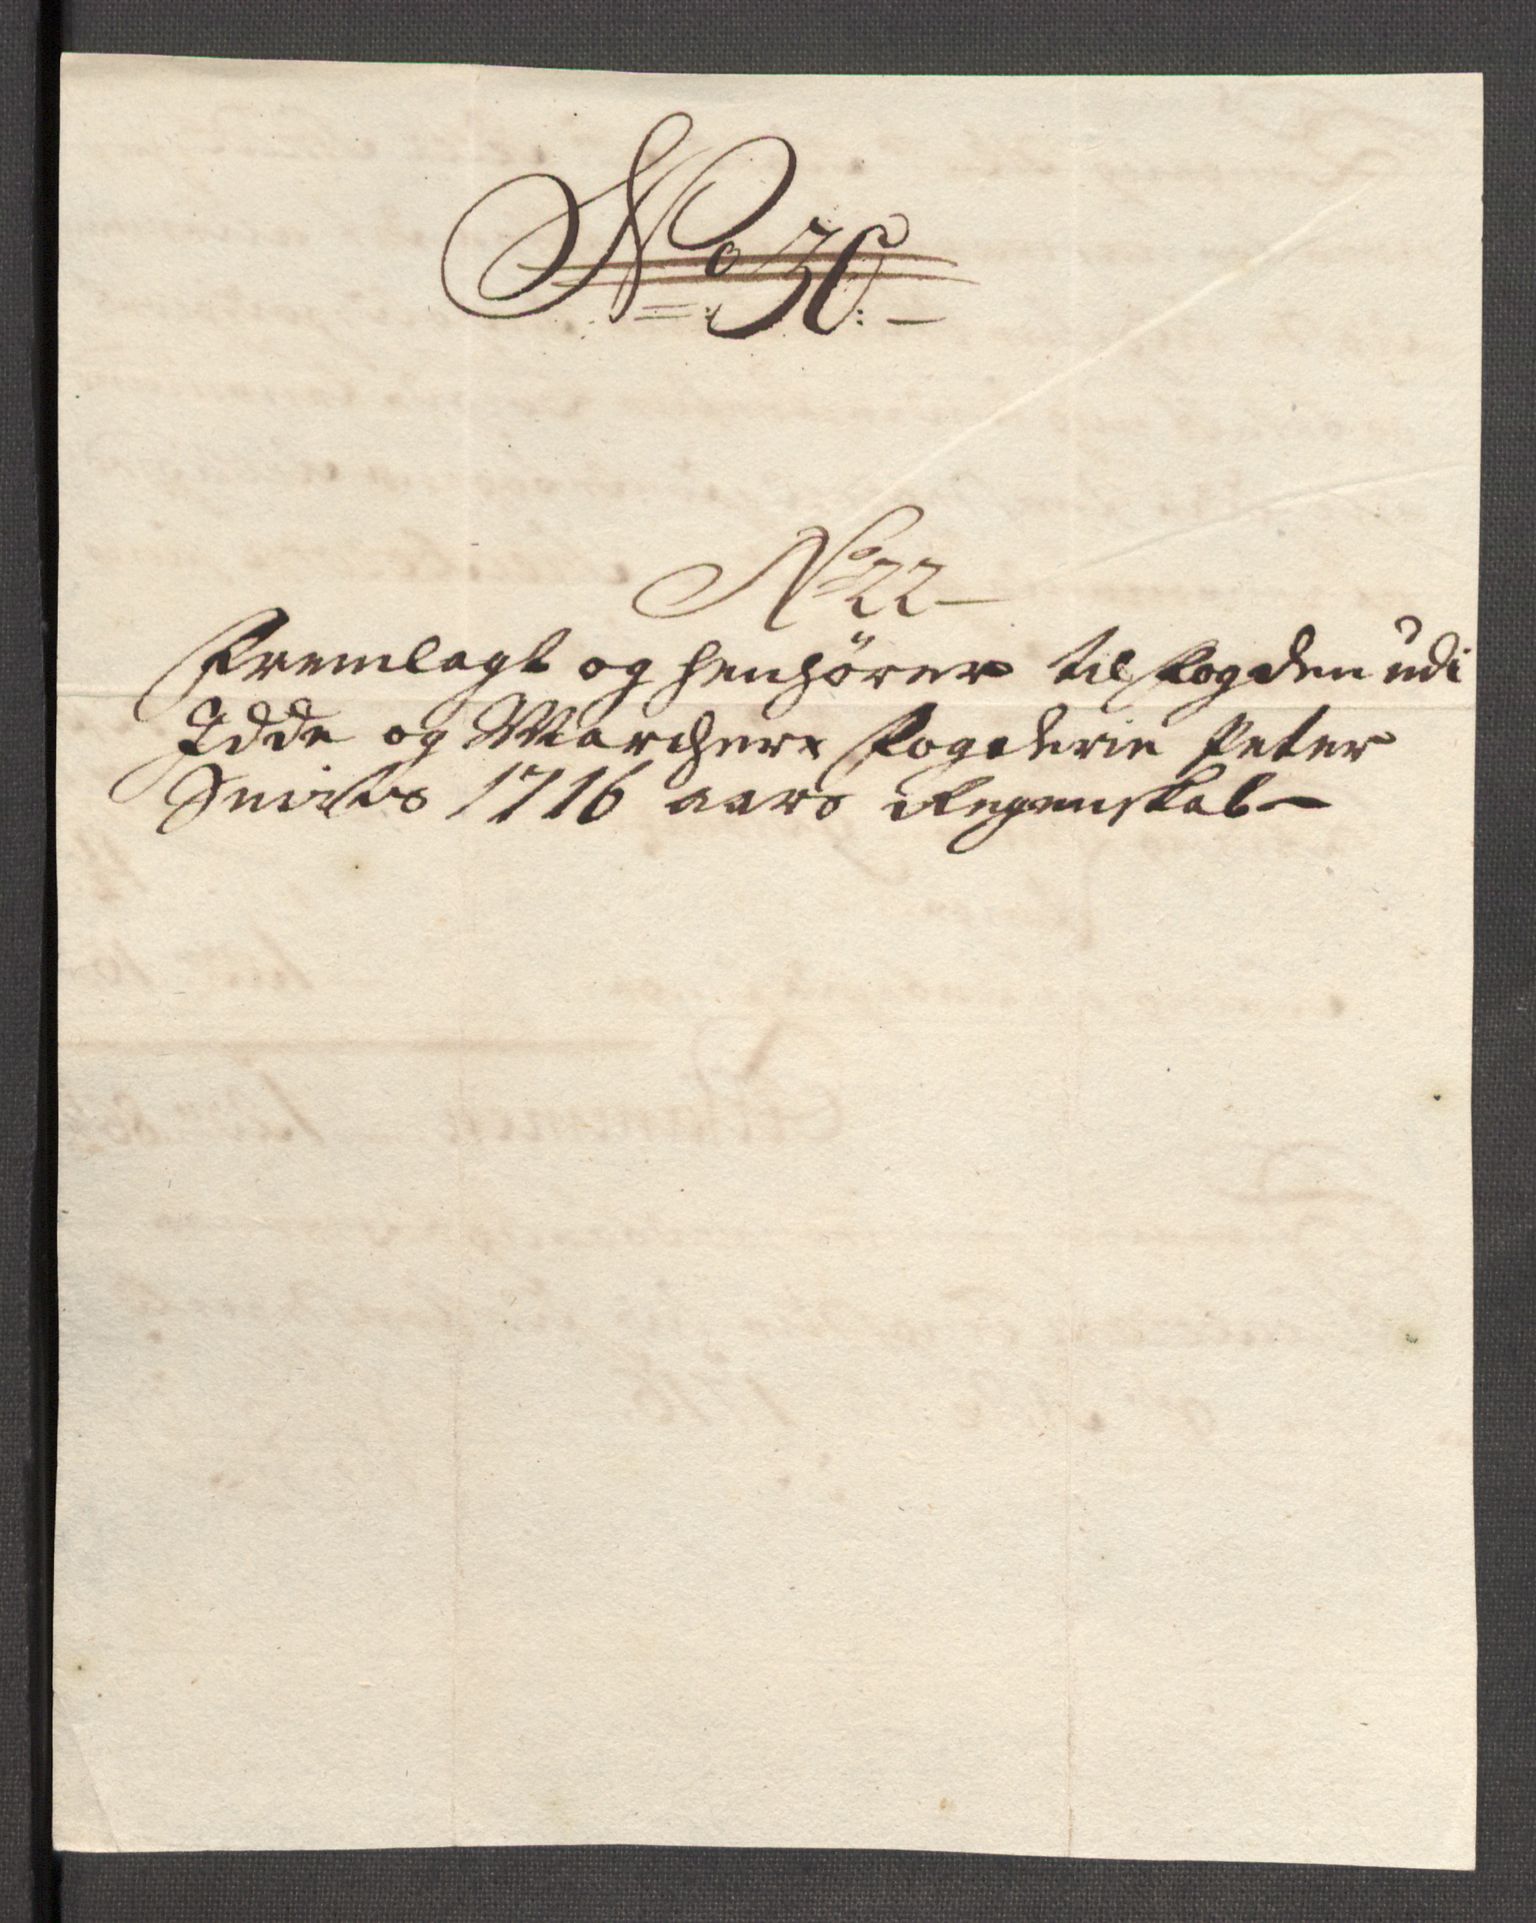 No 36. –
No 22 –
Fremlagt og henhörer til fogden udi
Idde og Marchers fogderie Peter
1716 aars Regenskab –